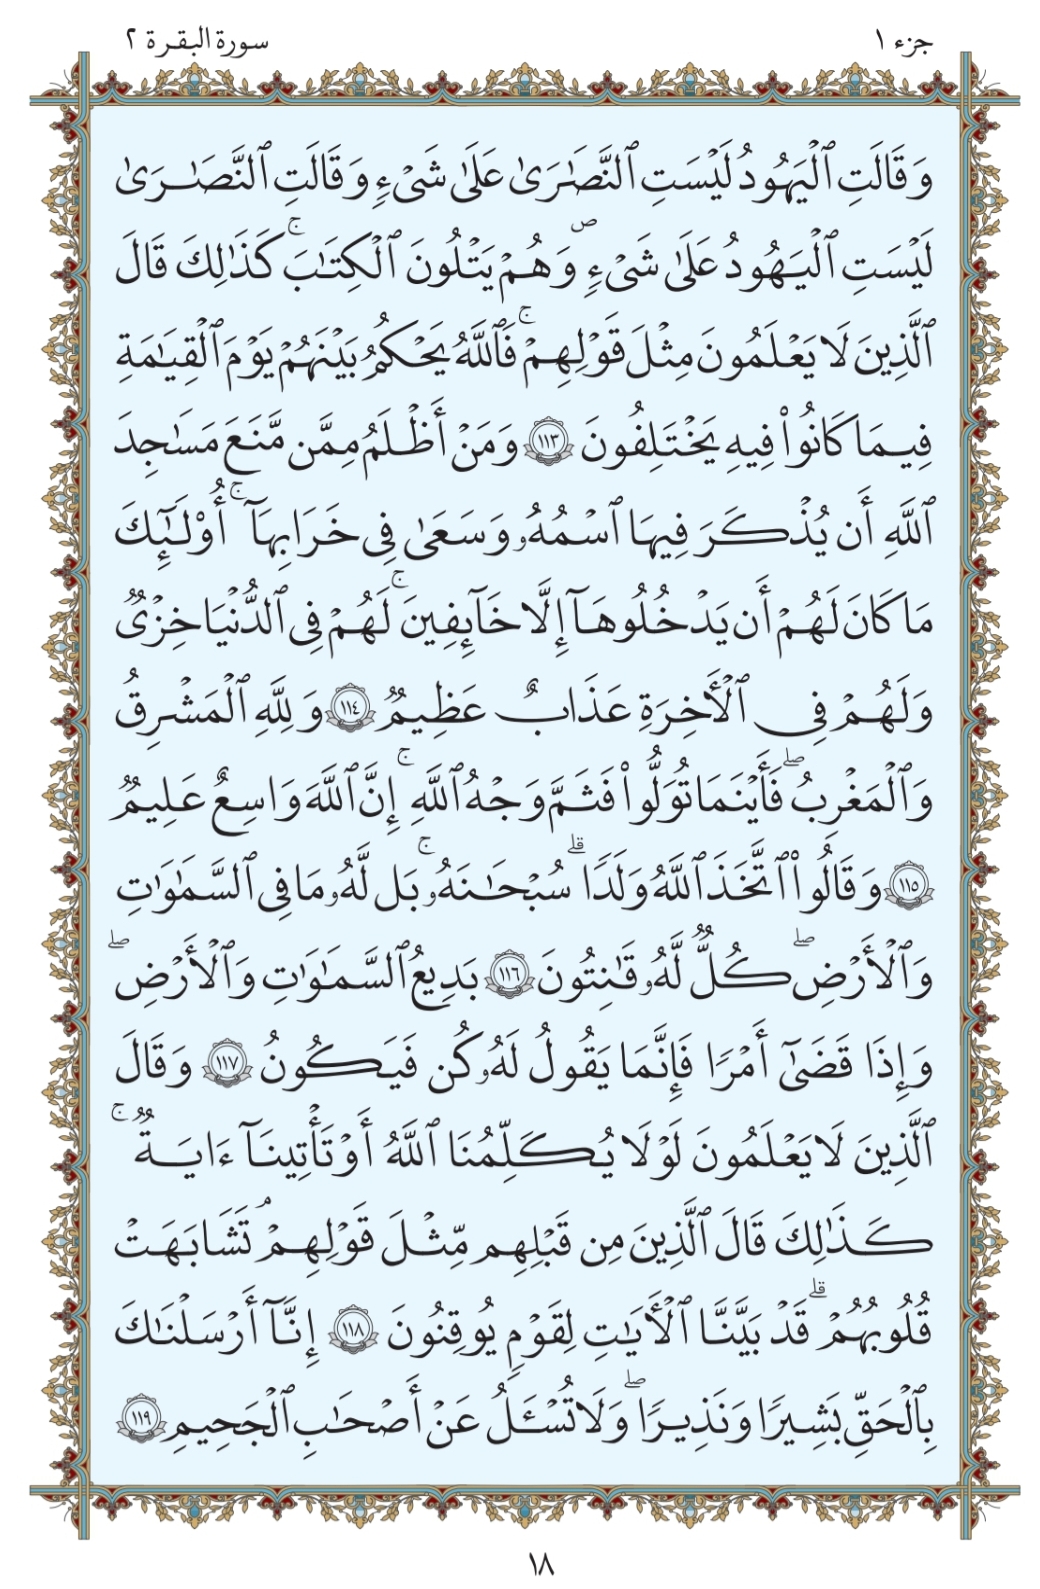 جزء ١
سورة البقرة ٢
وَقَالَتِ ٱلْيَهُودُ لَيْسَتِ ٱلنَّصَٰرَىٰ عَلَىٰ شَىْءٍ وَقَالَتِ ٱلنَّصَٰرَىٰ
لَيْسَتِ ٱلْيَهُودُ عَلَىٰ شَىْءٍ ۙ وَهُمْ يَتْلُونَ ٱلْكِتَٰبَ ۚ كَذَٰلِكَ قَالَ
ٱلَّذِينَ لَا يَعْلَمُونَ مِثْلَ قَوْلِهِمْ ۚ فَٱللَّهُ يَحْكُمُ بَيْنَهُمْ يَوْمَ ٱلْقِيَٰمَةِ
فِيمَا كَانُوا۟ فِيهِ يَخْتَلِفُونَ ١١٣ وَمَنْ أَظْلَمُ مِمَّن مَّنَعَ مَسَٰجِدَ
ٱللَّهِ أَن يُذْكَرَ فِيهَا ٱسْمُهُۥ وَسَعَىٰ فِى خَرَابِهَآ ۚ أُو۟لَٰٓئِكَ
مَا كَانَ لَهُمْ أَن يَدْخُلُوهَآ إِلَّا خَآئِفِينَ ۚ لَهُمْ فِى ٱلدُّنْيَا خِزْىٌ
وَلَهُمْ فِى ٱلْأَخِرَةِ عَذَابٌ عَظِيمٌ ١١٤ وَلِلَّهِ ٱلْمَشْرِقُ
وَٱلْمَغْرِبُ ۖ فَأَيْنَمَا تُوَلُّوا۟ فَثَمَّ وَجْهُ ٱللَّهِ ۚ إِنَّ ٱللَّهَ وَاسِعٌ عَلِيمٌ
١١٥ وَقَالُوا۟ ٱتَّخَذَ ٱللَّهُ وَلَدًا ۗ سُبْحَٰنَهُۥ ۚ بَل لَّهُۥ مَا فِى ٱلسَّمَٰوَٰتِ
وَٱلْأَرْضِ ۖ كُلٌّ لَّهُۥ قَٰنِتُونَ ١١٦ بَدِيعُ ٱلسَّمَٰوَٰتِ وَٱلْأَرْضِ ۖ
وَإِذَا قَضَىٰٓ أَمْرًا فَإِنَّمَا يَقُولُ لَهُۥ كُن فَيَكُونُ ١١٧ وَقَالَ
ٱلَّذِينَ لَا يَعْلَمُونَ لَوْلَا يُكَلِّمُنَا ٱللَّهُ أَوْ تَأْتِينَآ ءَايَةٌ ۚ
كَذَٰلِكَ قَالَ ٱلَّذِينَ مِن قَبْلِهِم مِّثْلَ قَوْلِهِمْ ۘ تَشَٰبَهَتْ
قُلُوبُهُمْ ۗ قَدْ بَيَّنَّا ٱلْأَيَٰتِ لِقَوْمٍ يُوقِنُونَ ١١٨ إِنَّآ أَرْسَلْنَٰكَ
بِٱلْحَقِّ بَشِيرًا وَنَذِيرًا ۖ وَلَا تُسْـَٔلُ عَنْ أَصْحَٰبِ ٱلْجَحِيمِ ١١٩
١٨